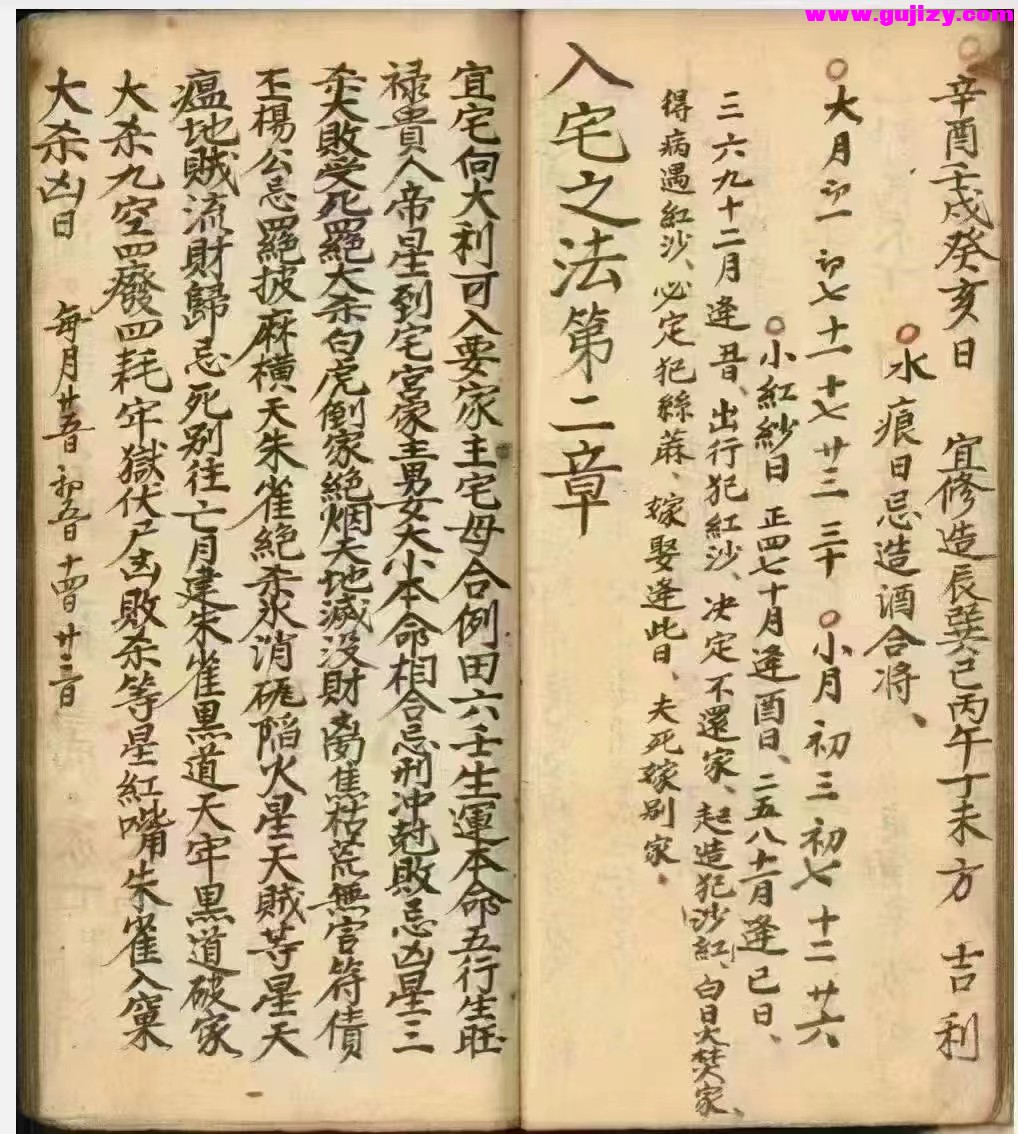 www.gujizy.com
辛酉壬戌癸亥日 宜修造辰巽巳丙午丁未方 吉利
○水痕日忌造酒合将、
○大月初一初七十一十七廿三三十 ○小月初三初七十二廿六
○小紅紗日 正四七十月逢酉日、二五八十一月逢巳日、
三六九十二月逢丑日、出行犯紅沙、决定不還家、起造犯沙紅、白日火焚家、
得病遇紅沙、必定犯絲蔴、嫁娶逢此日、夫死嫁别家.
入宅之法第二章
宜宅向大利可入要家主宅母合例田六壬生運本命五行生旺
禄貴人帝星到宅宮家主男女大小本命相合忌刑冲尅敗忌凶星三
杀大敗受死罒絕大杀白虎倒家絕烟天地滅没財离焦枯荒無官符債
丕楊公忌罒絕披麻横天朱雀絕杀氷消硊陷火星天賊等星天
瘟地賊流財歸忌死别往亡月建朱雀黑道天牢黑道破家
大杀九空四廢四耗牢獄伏尸凶敗杀等星紅嘴朱雀入窠
大杀凶日 每月廿五日初五日十四日廿三日